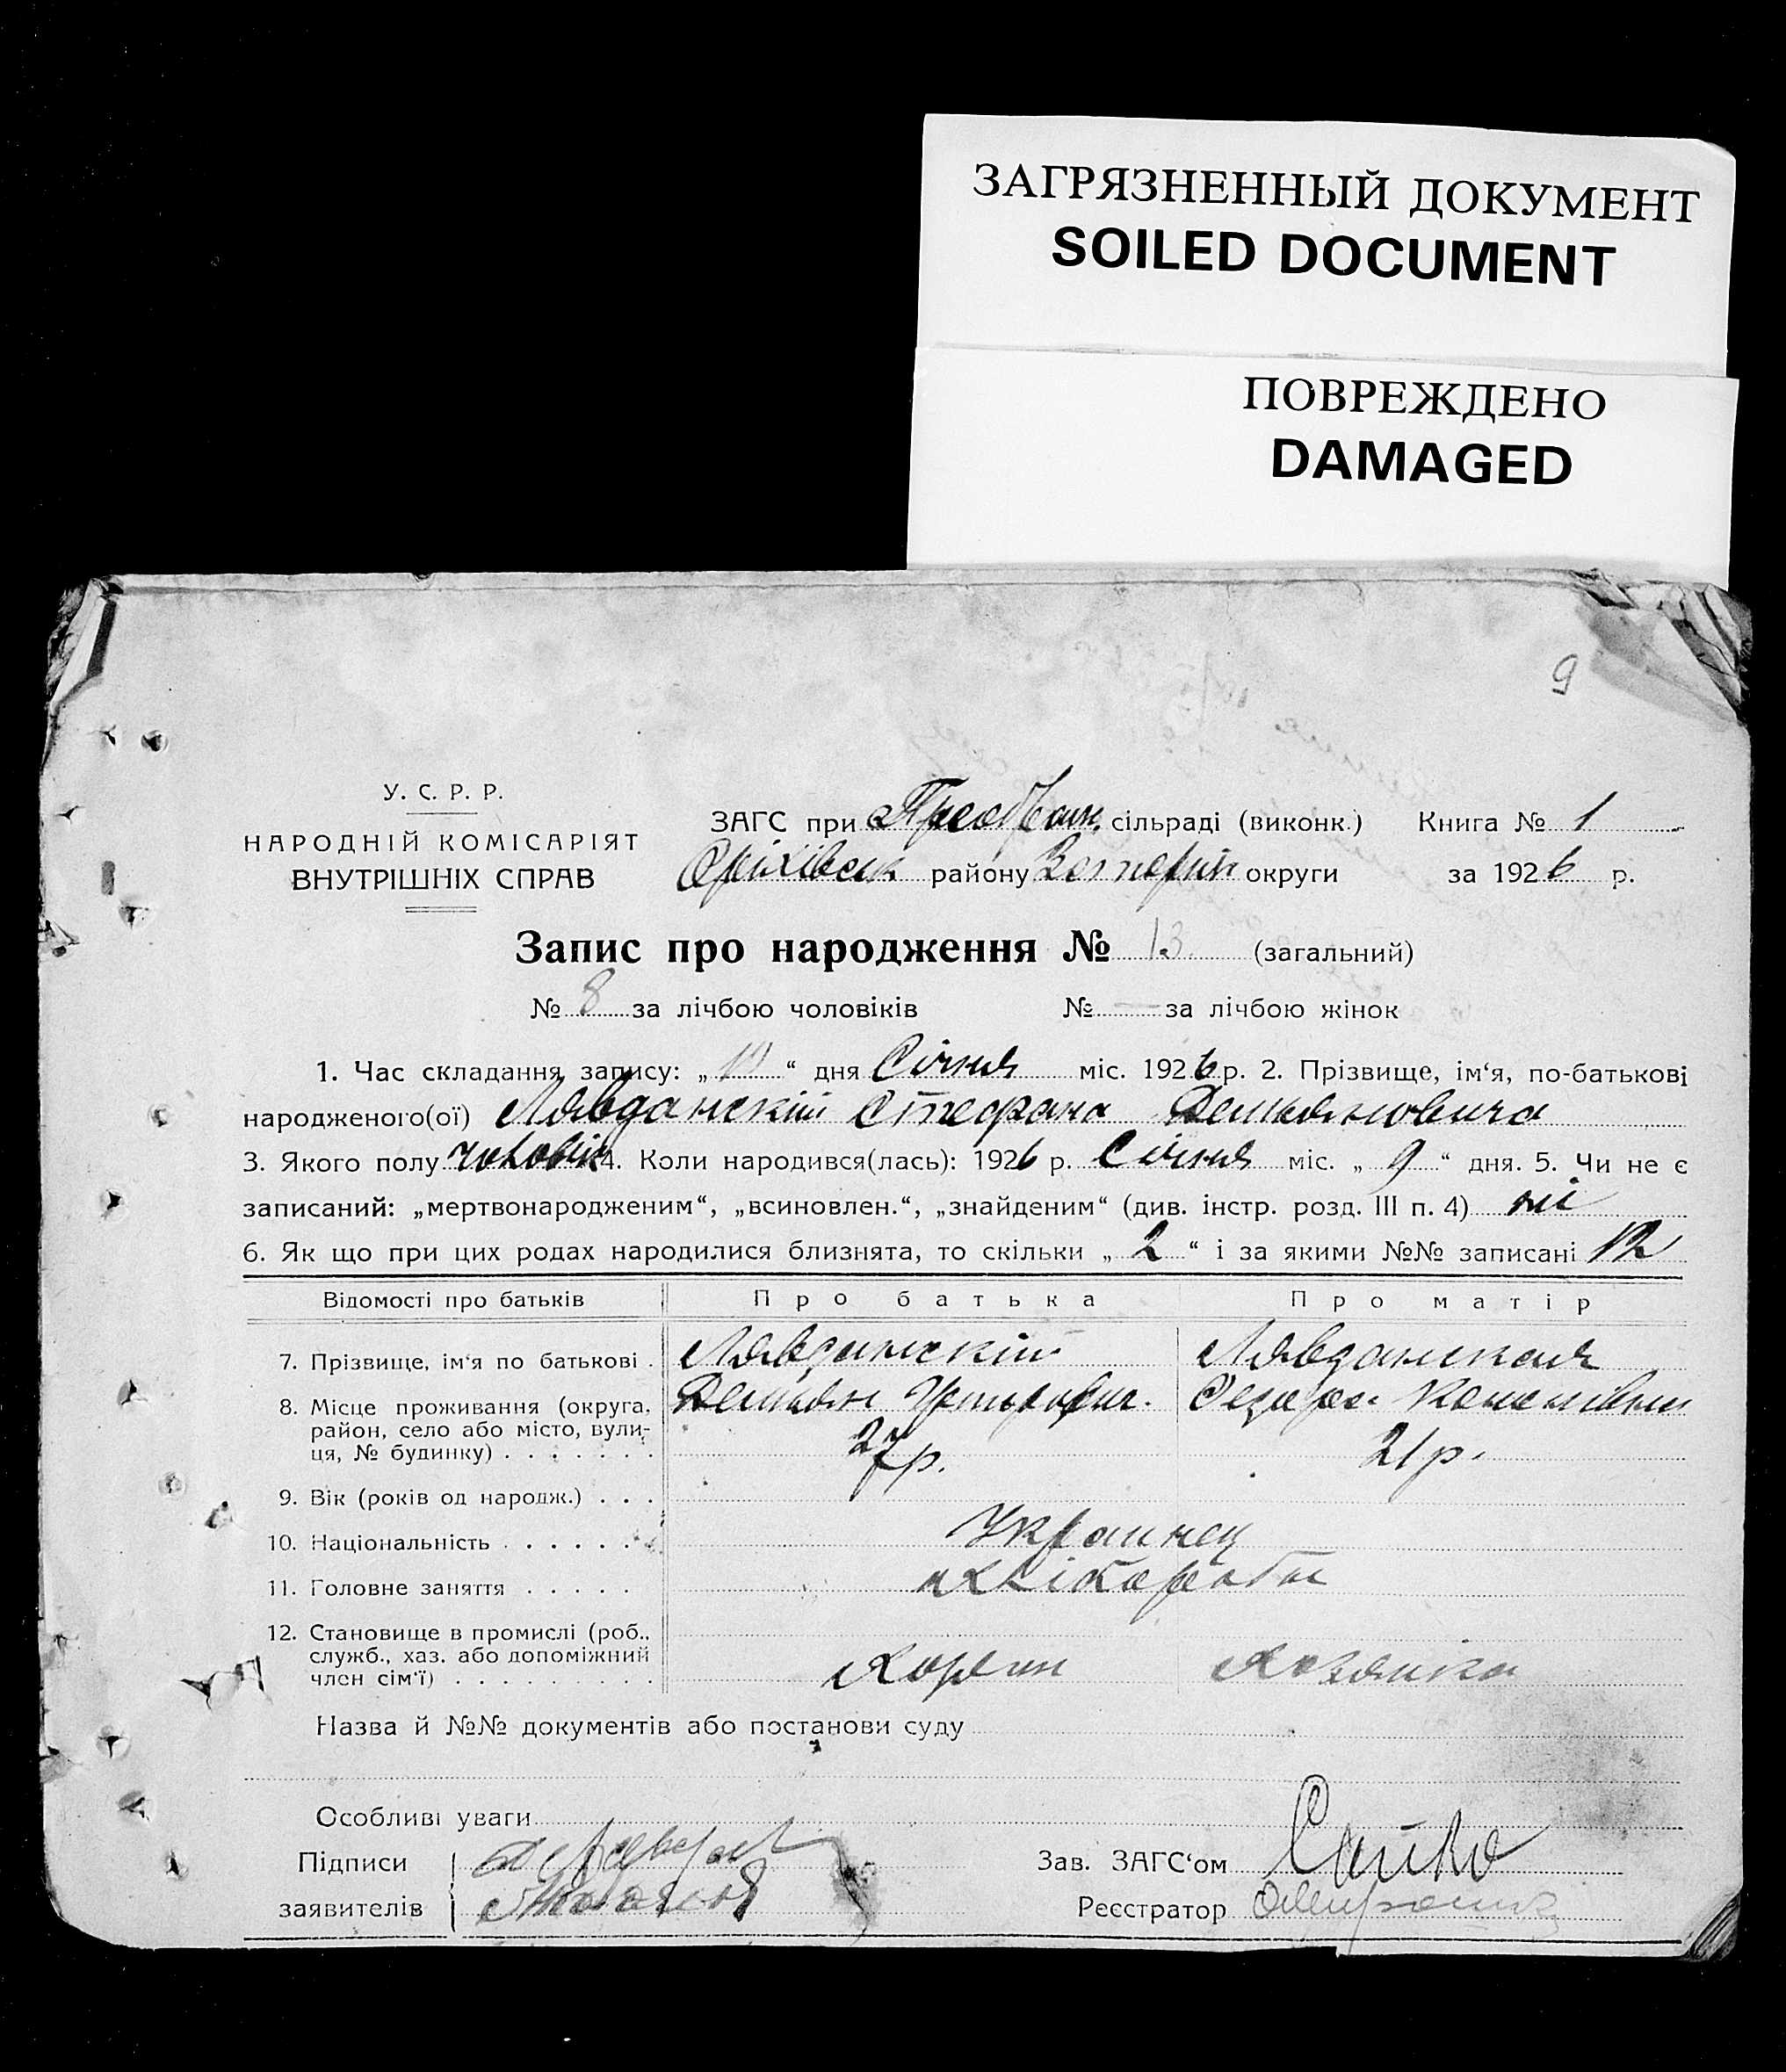 ЗАГРЯЗНЕННЫЙ ДОКУМЕНТ
SOILED DOCUMENT
ПОВРЕЖДЕНО
DAMAGED
9
У. С. Р. Р.
НАРОДНІЙ КОМІСАРІЯТ
ВНУТРІШНІХ СПРАВ
ЗАГС при Преображ. сільраді (виконк.) Книга № 1
Оріхівськ району Запоріж округи за 1926 р.
Запис про народження № 13 (загальний)
№ 8 за лічбою чоловіків № — за лічбою жінок
1. Час складання запису: „ “ дня Січня міс. 1926 р. 2. Прізвище, ім‘я, по-батькові
народженого(ої) Лявданскій Стефана Демьяновича
3. Якого полу чоловік 4. Коли народився(лась): 1926 р. Січня міс. „ 9 “ дня. 5. Чи не є
записаний: „мертвонародженим“, „всиновлен.“, „знайденим“ (див. інстр. розд. III п. 4) ні
6. Як що при цих родах народилися близнята, то скільки „ 2 “ і за якими №№ записані 12
Відомості про батьків Про батька Про матір
7. Прізвище, ім‘я по батькові . Лявданскій Лявданская
8. Місце проживання (округа, район, село або місто, вулиця, № будинку) . . . . . . . Демьян
27 р. 21 р.
9. Вік (років од народж.) . . .
10. Національність . . . . . . . Украинец
11. Головне заняття . . . . . Хліборобы
12. Становище в промислі (роб., служб., хаз. або допоміжний член сім‘ї) . . . . . . . . . Хозяин Хозяйка
Назва й №№ документів або постанови суду
Особливі уваги
Підписи
заявителів
Зав. ЗАГС‘ом Сайко
Реєстратор